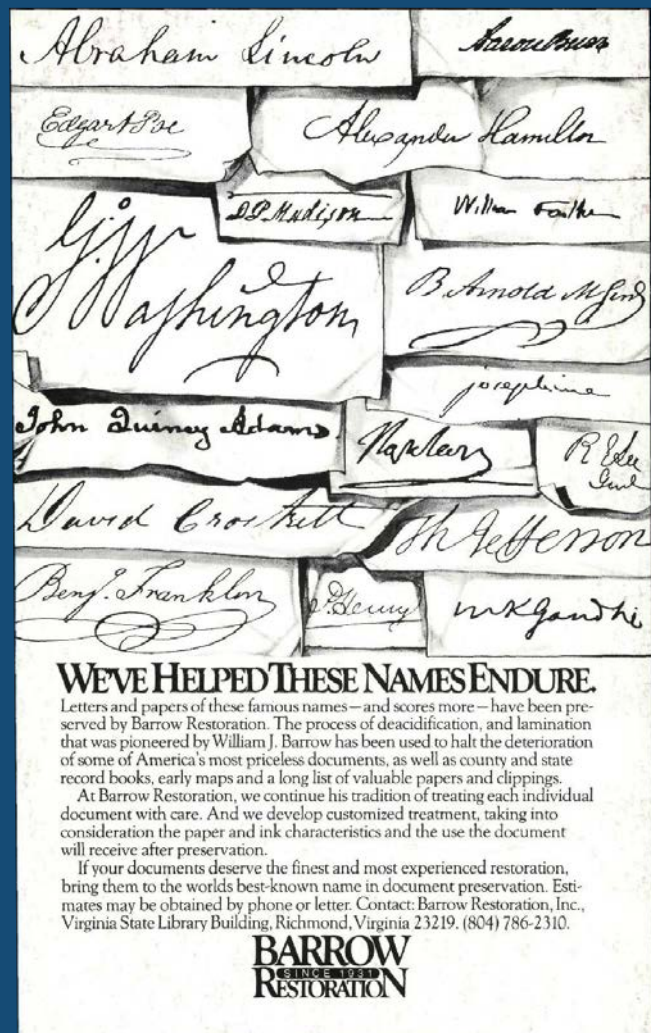 Abraham Lincoln
Aaron Burr
Edgar A Poe
Alexander Hamilton
D. P. Madison
William Faulkner
G. Washington
B. Arnold M Genl
josephine
John Quincy Adams
R E Lee
Genl
David Crockett
Th Jefferson
Benj. Franklin
P. Henry
mKGandhi
WE'VE HELPED THESE NAMES ENDURE.
Letters and papers of these famous names—and scores more—have been pre-
served by Barrow Restoration. The process of deacidification, and lamination
that was pioneered by William J. Barrow has been used to halt the deterioration
of some of America's most priceless documents, as well as county and state
record books, early maps and a long list of valuable papers and clippings.
At Barrow Restoration, we continue his tradition of treating each individual
document with care. And we develop customized treatment, taking into
consideration the paper and ink characteristics and the use the document
will receive after preservation.
If your documents deserve the finest and most experienced restoration,
bring them to the worlds best-known name in document preservation. Esti-
mates may be obtained by phone or letter. Contact: Barrow Restoration, Inc.,
Virginia State Library Building, Richmond, Virginia 23219. (804) 786-2310.
BARROW
SINCE 1931
RESTORATION